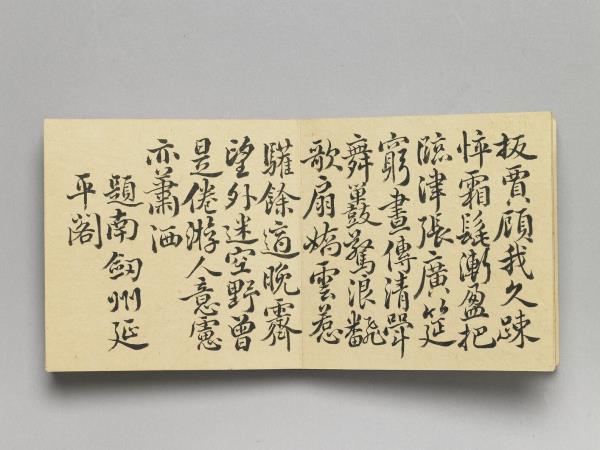 扳賈顧我久疎
悴霜髭漸盈把
臨津張廣筵
窮晝傳清斝
舞鼉驚浪翻
歌扇嬌雲惹
驩餘適晚霽
望外迷空野曾
是倦游人意慮
亦蕭洒
題南劒州延
平閣